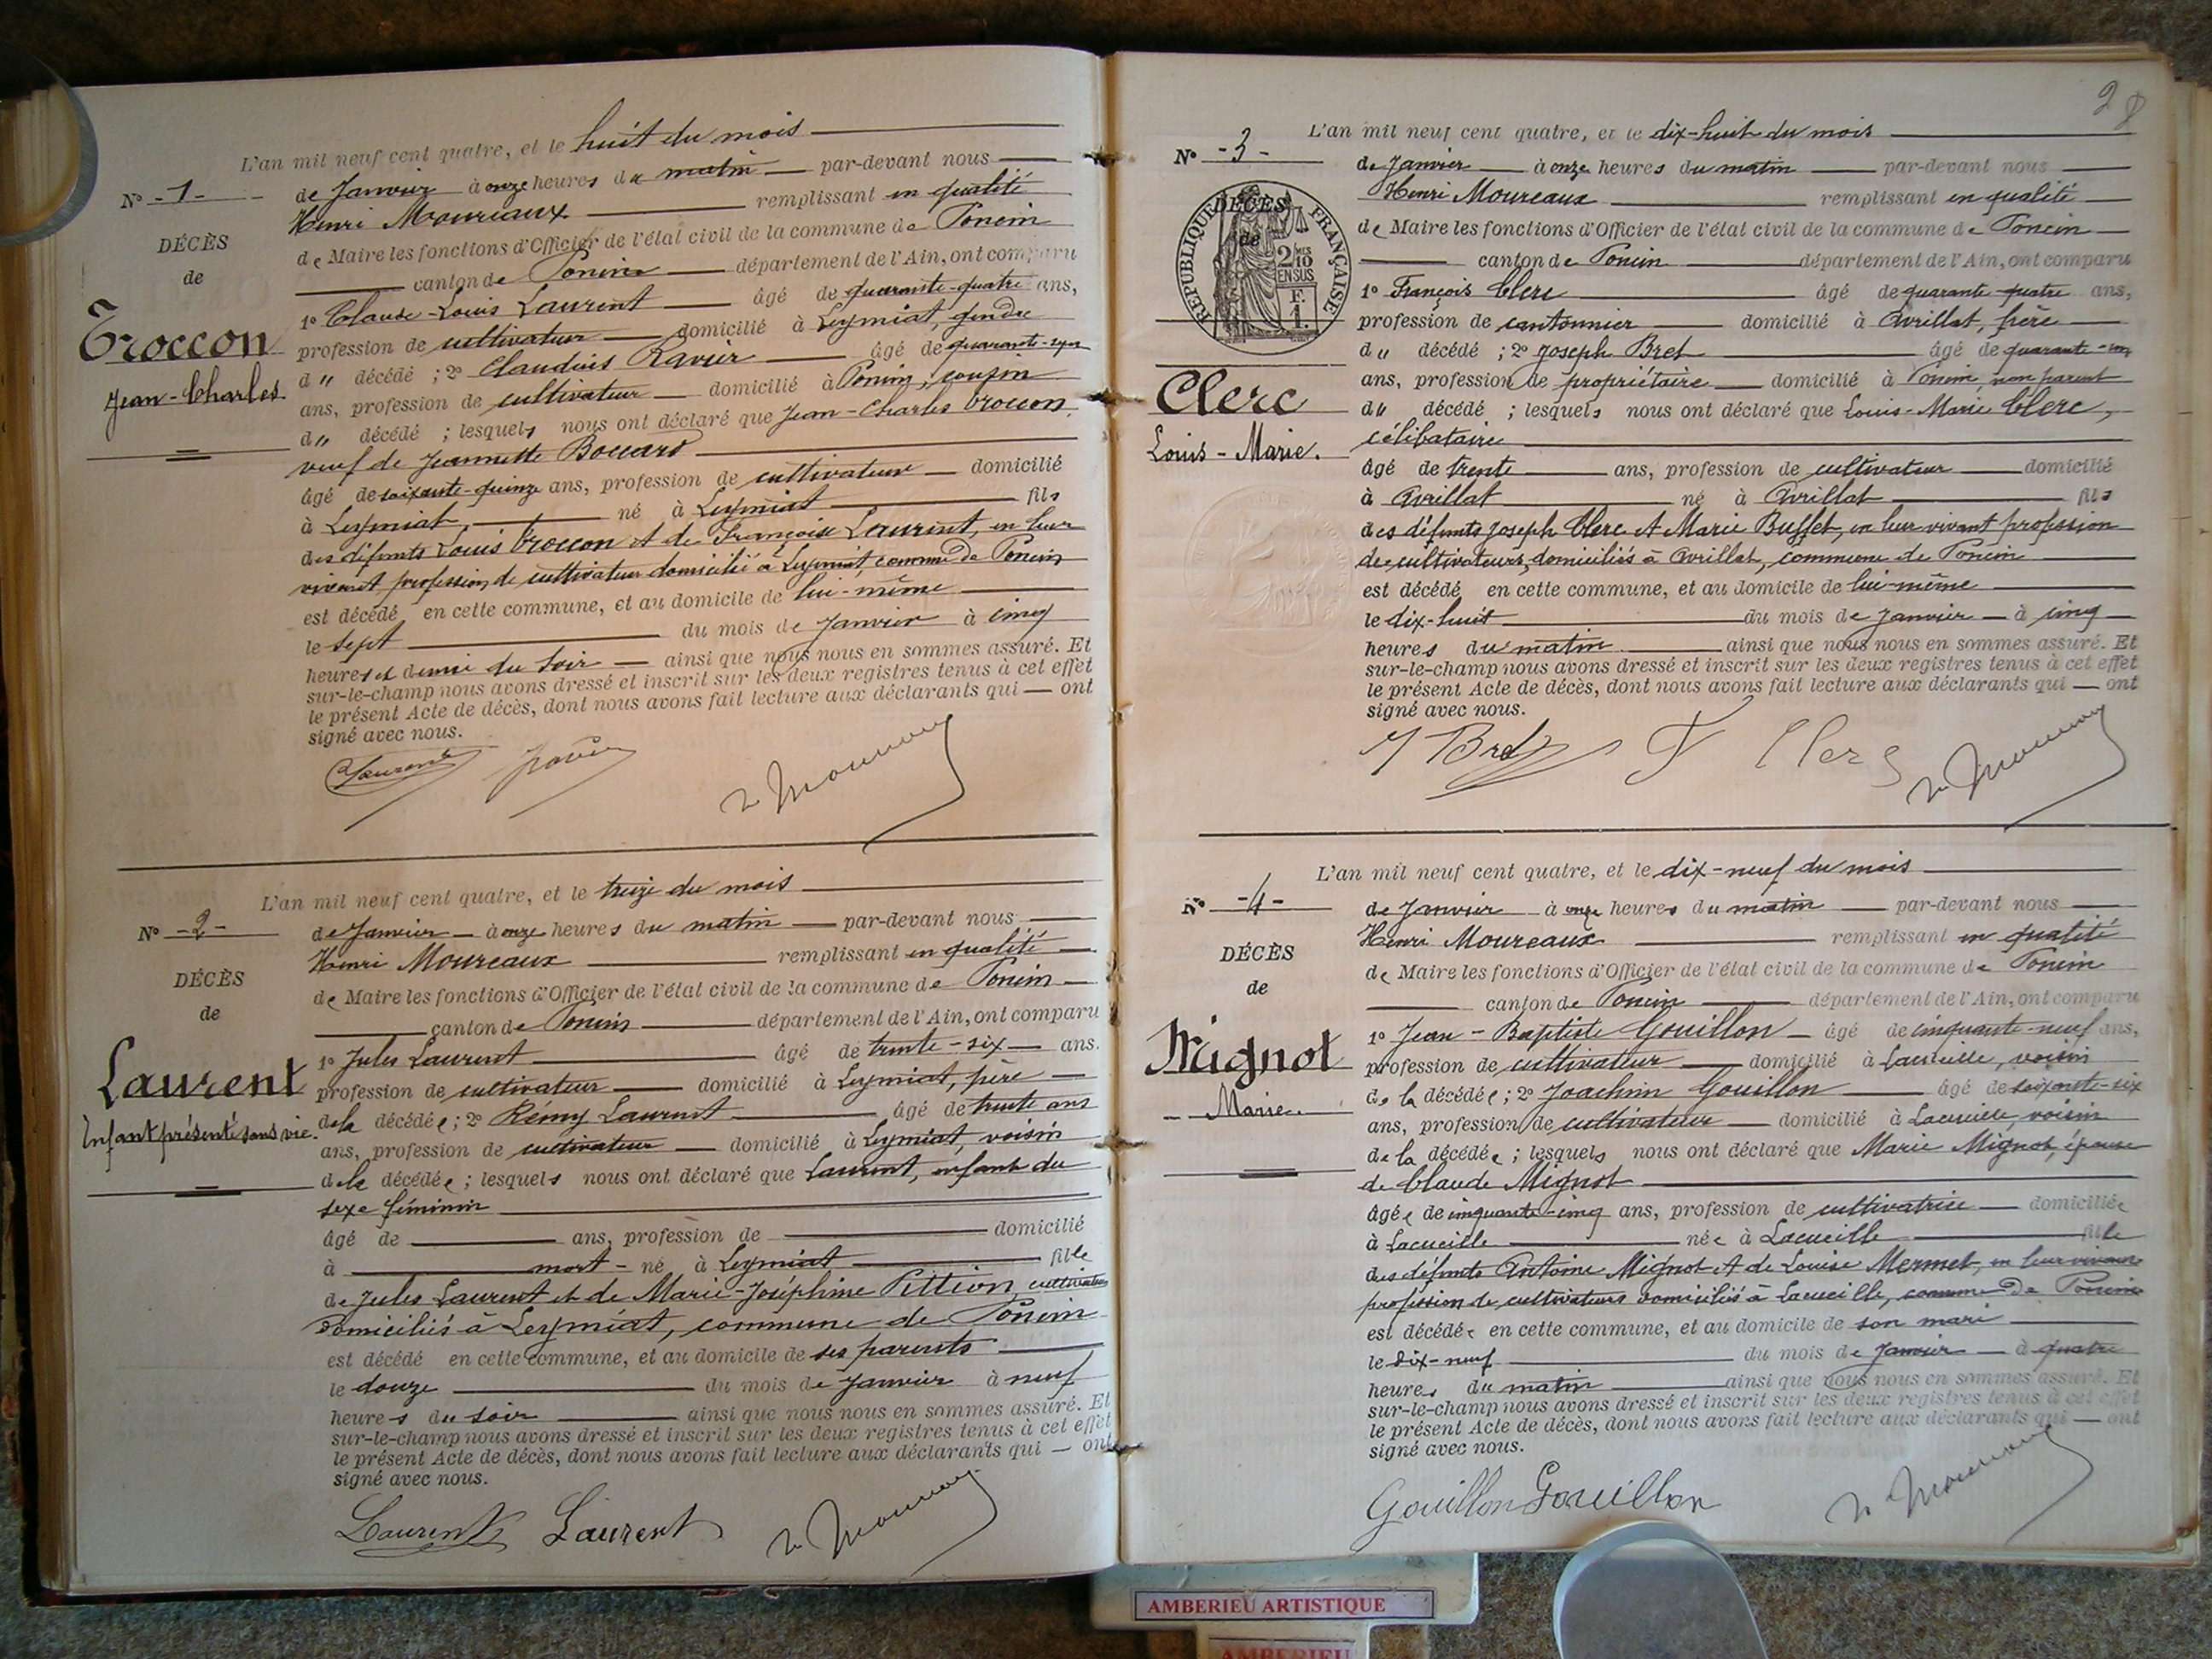 L'an mil neuf cent quatre, et le huit du mois
N° -1-
de Janvier à onze heures du matin par-devant nous
Henri Moureaux remplissant en qualité
de Maire les fonctions d'Officier de l'état civil de la commune de Poncin
canton de Poncin département de l'Ain, ont comparu
1° Claude-Louis Laurent âgé de quarante-quatre ans,
profession de cultivateur domicilié à Leymiat, gendre
du décédé ; 2° Claudius Ravier âgé de
ans, profession de cultivateur domicilié à Poncin, cousin
du décédé ; lesquels nous ont déclaré que Jean-Charles Troccon,
veuf de Jeannette Boccard
âgé de soixante-quinze ans, profession de cultivateur domicilié
à Leymiat, né à Leymiat fils
des défunts Louis Troccon et de Françoise Laurent, en leur
vivant profession de cultivateur domicilié à Leymiat, commune de Poncin
est décédé en cette commune, et au domicile de lui-même
le sept du mois de Janvier à cinq
heures et demie du soir ainsi que nous nous en sommes assuré. Et
sur-le-champ nous avons dressé et inscrit sur les deux registres tenus à cet effet
le présent Acte de décès, dont nous avons fait lecture aux déclarants qui ont
signé avec nous.
DÉCÈS
de
Troccon
Jean-Charles.
Laurent
L'an mil neuf cent quatre, et le treize du mois
N° -2-
de Janvier à onze heures du matin par-devant nous
Henri Moureaux remplissant en qualité
de Maire les fonctions d'Officier de l'état civil de la commune de Poncin
canton de Poncin département de l'Ain, ont comparu
1° Jules Laurent âgé de trente-six ans.
profession de cultivateur domicilié à Leymiat, père
de la décédée ; 2° Remy Laurent âgé de trente ans
ans, profession de cultivateur domicilié à Leymiat, voisin
de la décédée ; lesquels nous ont déclaré que Laurent, enfant du
sexe féminin
âgé de ans, profession de domicilié
à mort-né à Leymiat fille
de Jules Laurent et de Marie-Joséphine Pittion, cultivateurs
domiciliés à Leymiat, commune de Poncin
est décédé en cette commune, et au domicile de ses parents
le douze du mois de Janvier à neuf
heures du soir ainsi que nous nous en sommes assuré. Et
sur-le-champ nous avons dressé et inscrit sur les deux registres tenus à cet effet
le présent Acte de décès, dont nous avons fait lecture aux déclarants qui ont
signé avec nous.
DÉCÈS
de
Laurent
Enfant présenté sans vie.
Laurent Laurent
2
L'an mil neuf cent quatre, et le dix-huit du mois
N° -3-
de Janvier à onze heures du matin par-devant nous
Henri Moureaux remplissant en qualité
de Maire les fonctions d'Officier de l'état civil de la commune de Poncin
canton de Poncin département de l'Ain, ont comparu
1° François Clerc âgé de quarante-quatre ans,
profession de cantonnier domicilié à Avrillat, frère
du décédé ; 2° Joseph Bret âgé de quarante-un
ans, profession de propriétaire domicilié à Poncin, non parent
du décédé ; lesquels nous ont déclaré que Louis-Marie Clerc,
célibataire
âgé de trente ans, profession de cultivateur domicilié
à Avrillat né à Avrillat fils
des défunts Joseph Clerc et Marie Buffet, en leur vivant profession
de cultivateurs, domiciliés à Avrillat, commune de Poncin
est décédé en cette commune, et au domicile de lui-même
le dix-huit du mois de Janvier à cinq
heures du matin ainsi que nous nous en sommes assuré. Et
sur-le-champ nous avons dressé et inscrit sur les deux registres tenus à cet effet
le présent Acte de décès, dont nous avons fait lecture aux déclarants qui ont
signé avec nous.
RÉPUBLIQUE FRANÇAISE
DÉCÈS
de
2/10 EN SUS
F. 1.
Clerc
Louis-Marie.
J Bret F Clerc
L'an mil neuf cent quatre, et le dix-neuf du mois
N° -4-
de Janvier à onze heures du matin par-devant nous
Henri Moureaux remplissant en qualité
de Maire les fonctions d'Officier de l'état civil de la commune de Poncin
canton de Poncin département de l'Ain, ont comparu
1° Jean-Baptiste Gouillon âgé de cinquante-neuf ans,
profession de cultivateur domicilié à Lacueille, voisin
de la décédée ; 2° Joachim Gouillon âgé de soixante-six
ans, profession de cultivateur domicilié à Lacueille, voisin
de la décédée ; lesquels nous ont déclaré que Marie Mignot, épouse
de Claude Mignot
âgée de cinquante-cinq ans, profession de cultivatrice domiciliée
à Lacueille née à Lacueille fille
des défunts Antoine Mignot et de Louise Mermet, en leur vivant
profession de cultivateurs domiciliés à Lacueille, commune de Poncin
est décédée en cette commune, et au domicile de son mari
le dix-neuf du mois de Janvier à quatre
heures du matin ainsi que nous nous en sommes assuré. Et
sur-le-champ nous avons dressé et inscrit sur les deux registres tenus à cet effet
le présent Acte de décès, dont nous avons fait lecture aux déclarants qui ont
signé avec nous.
DÉCÈS
de
Mignot
Marie.
Gouillon Gouillon
AMBERIEU ARTISTIQUE
AMBERIEU